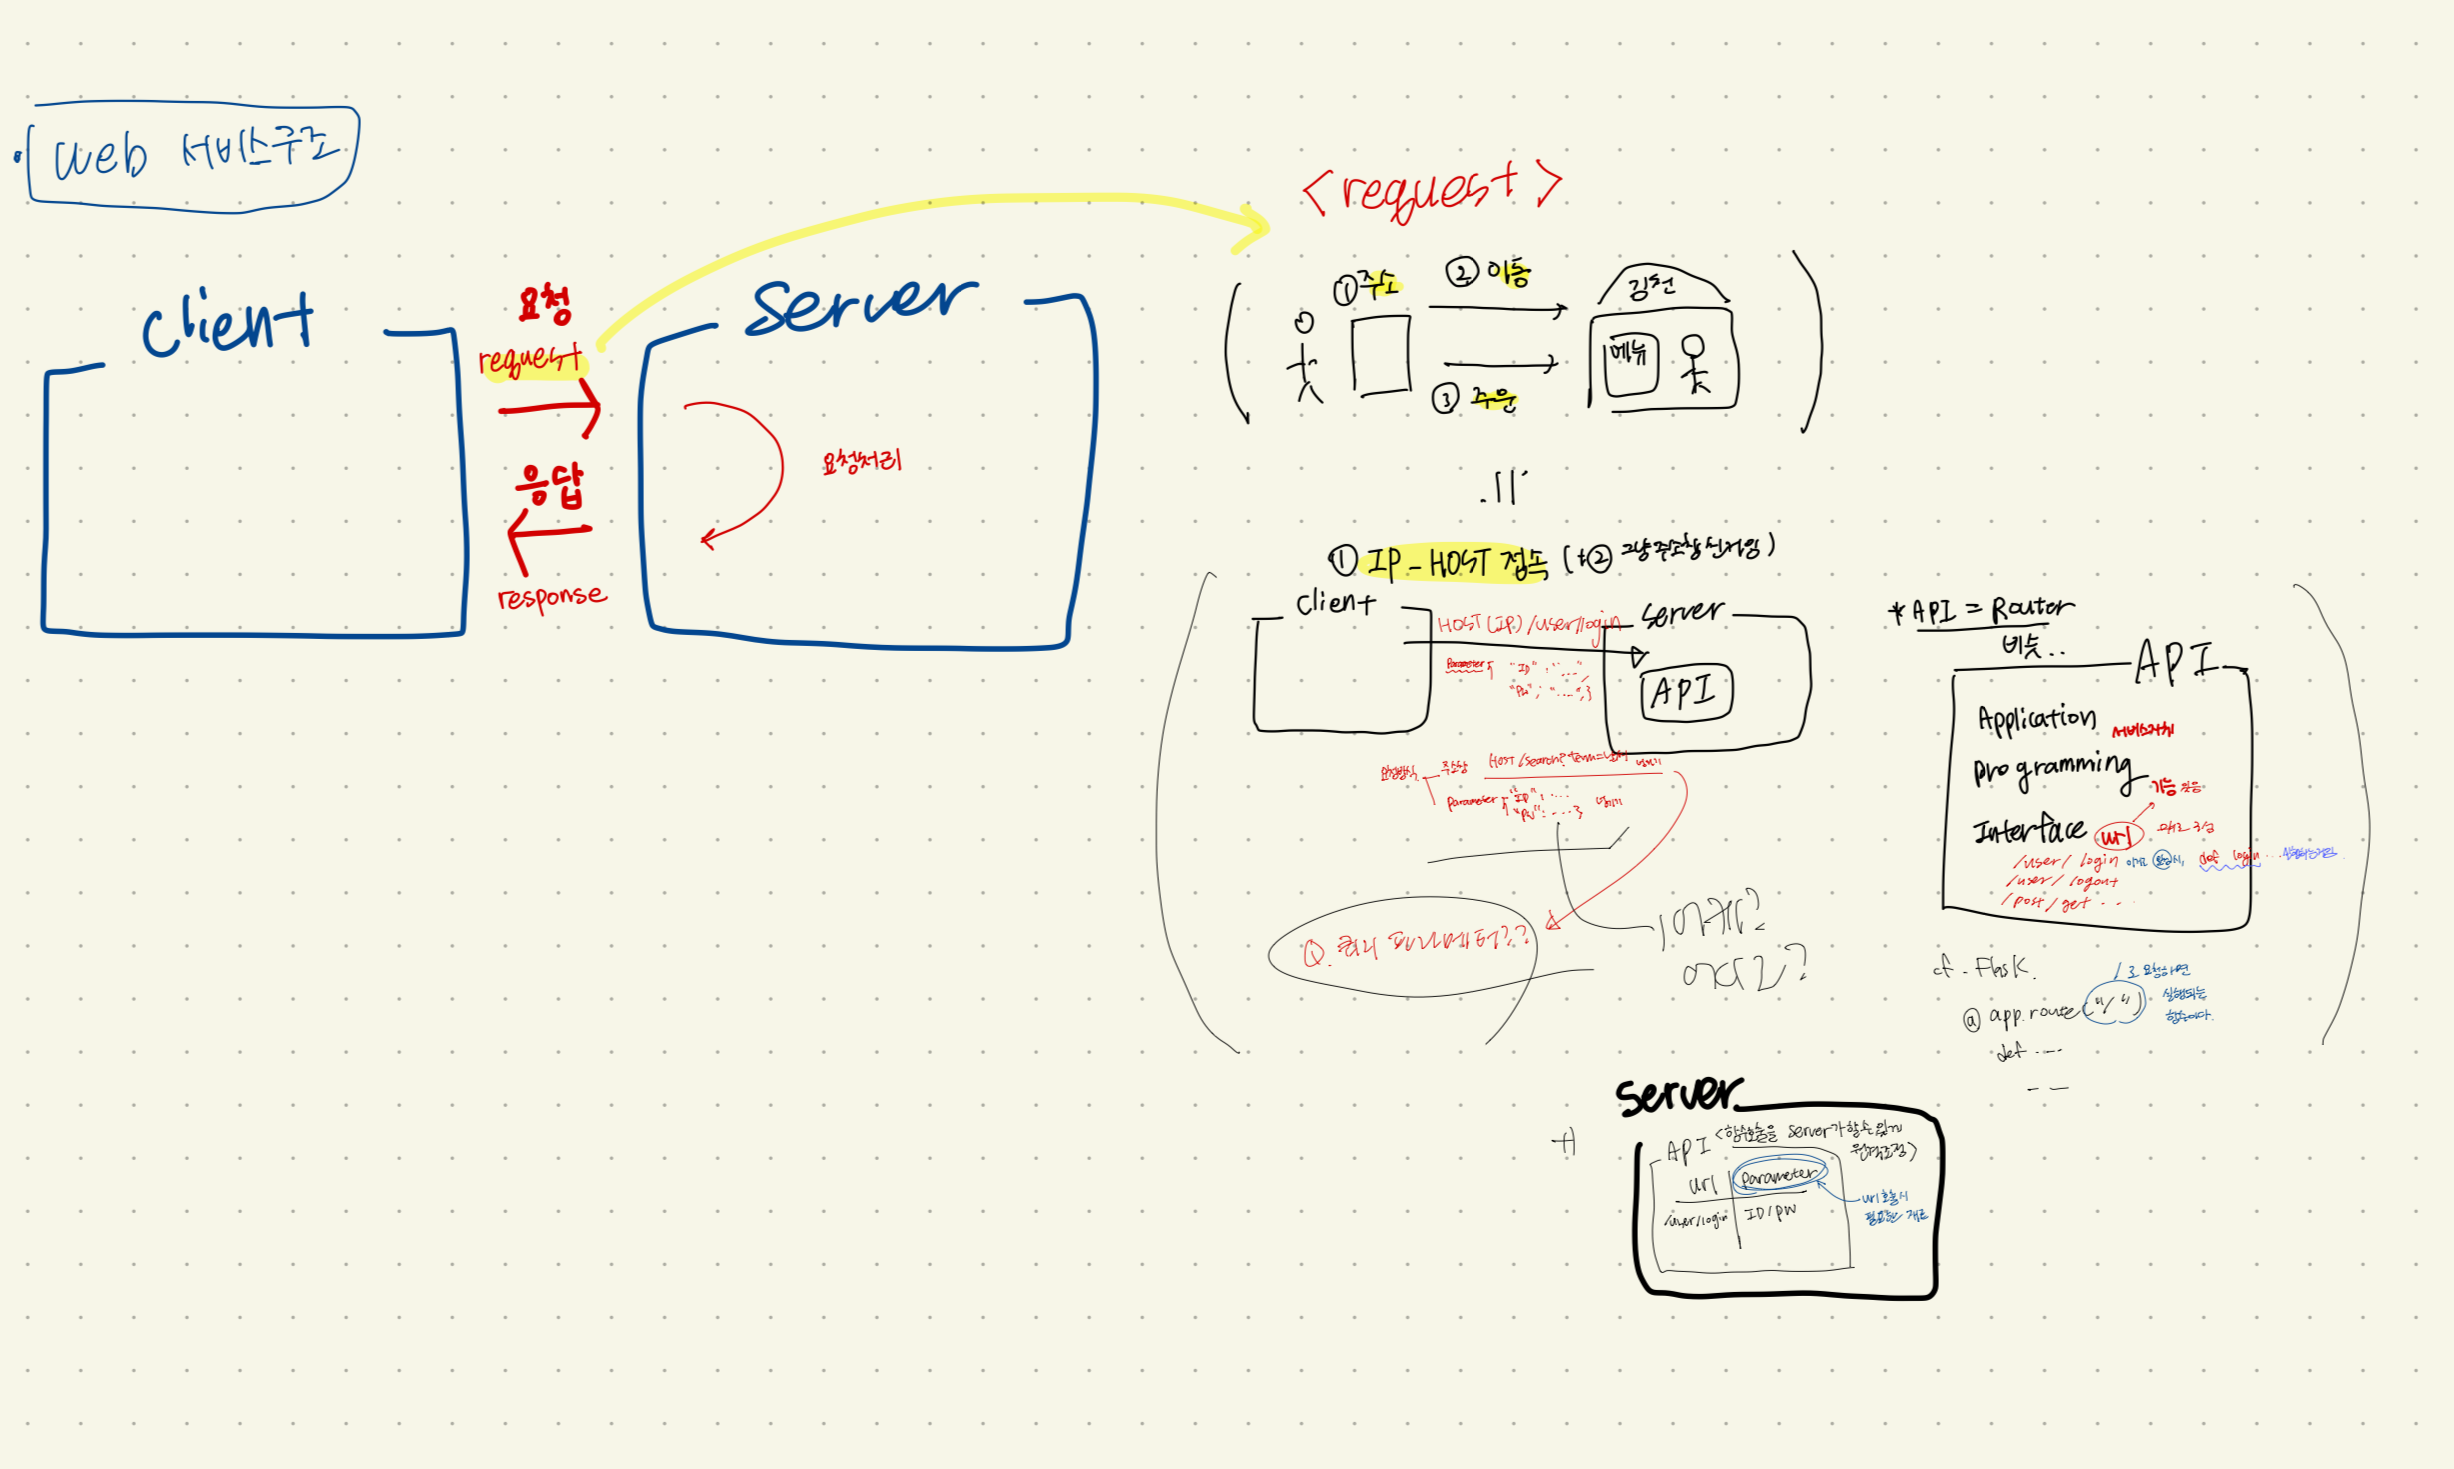 web 서비스구조
client
요청
request
응답
response
server
요청처리
<request>
① 주소
② 이동
③ 주문
김천
메뉴
① IP - HOST 접속 (+②
client
HOST(IP) /user/login
Parameter { "ID" : "...",
"PW" : "..." }
server
API
요청방식
주소창 HOST/search?term=
넘기기
parameter { "ID" : ...
"PW" : ... } 넘기기
Q. 쿼리 파라메터??
이게?
어디고?
* API = Router
비슷..
API
Application
서비스가치
programming
기능
Interface url
/user/login
def login ... 실행되는거임.
/user/logout
/post/get ...
cf. Flask.
@ app.route("/")
/로 요청하면
실행되는
함수이다.
def ...
server
+)
API <함수호출을 server가 할 수 있게
원격조정>
url
parameter
/user/login
ID/PW
url 호출시
필요한 재료